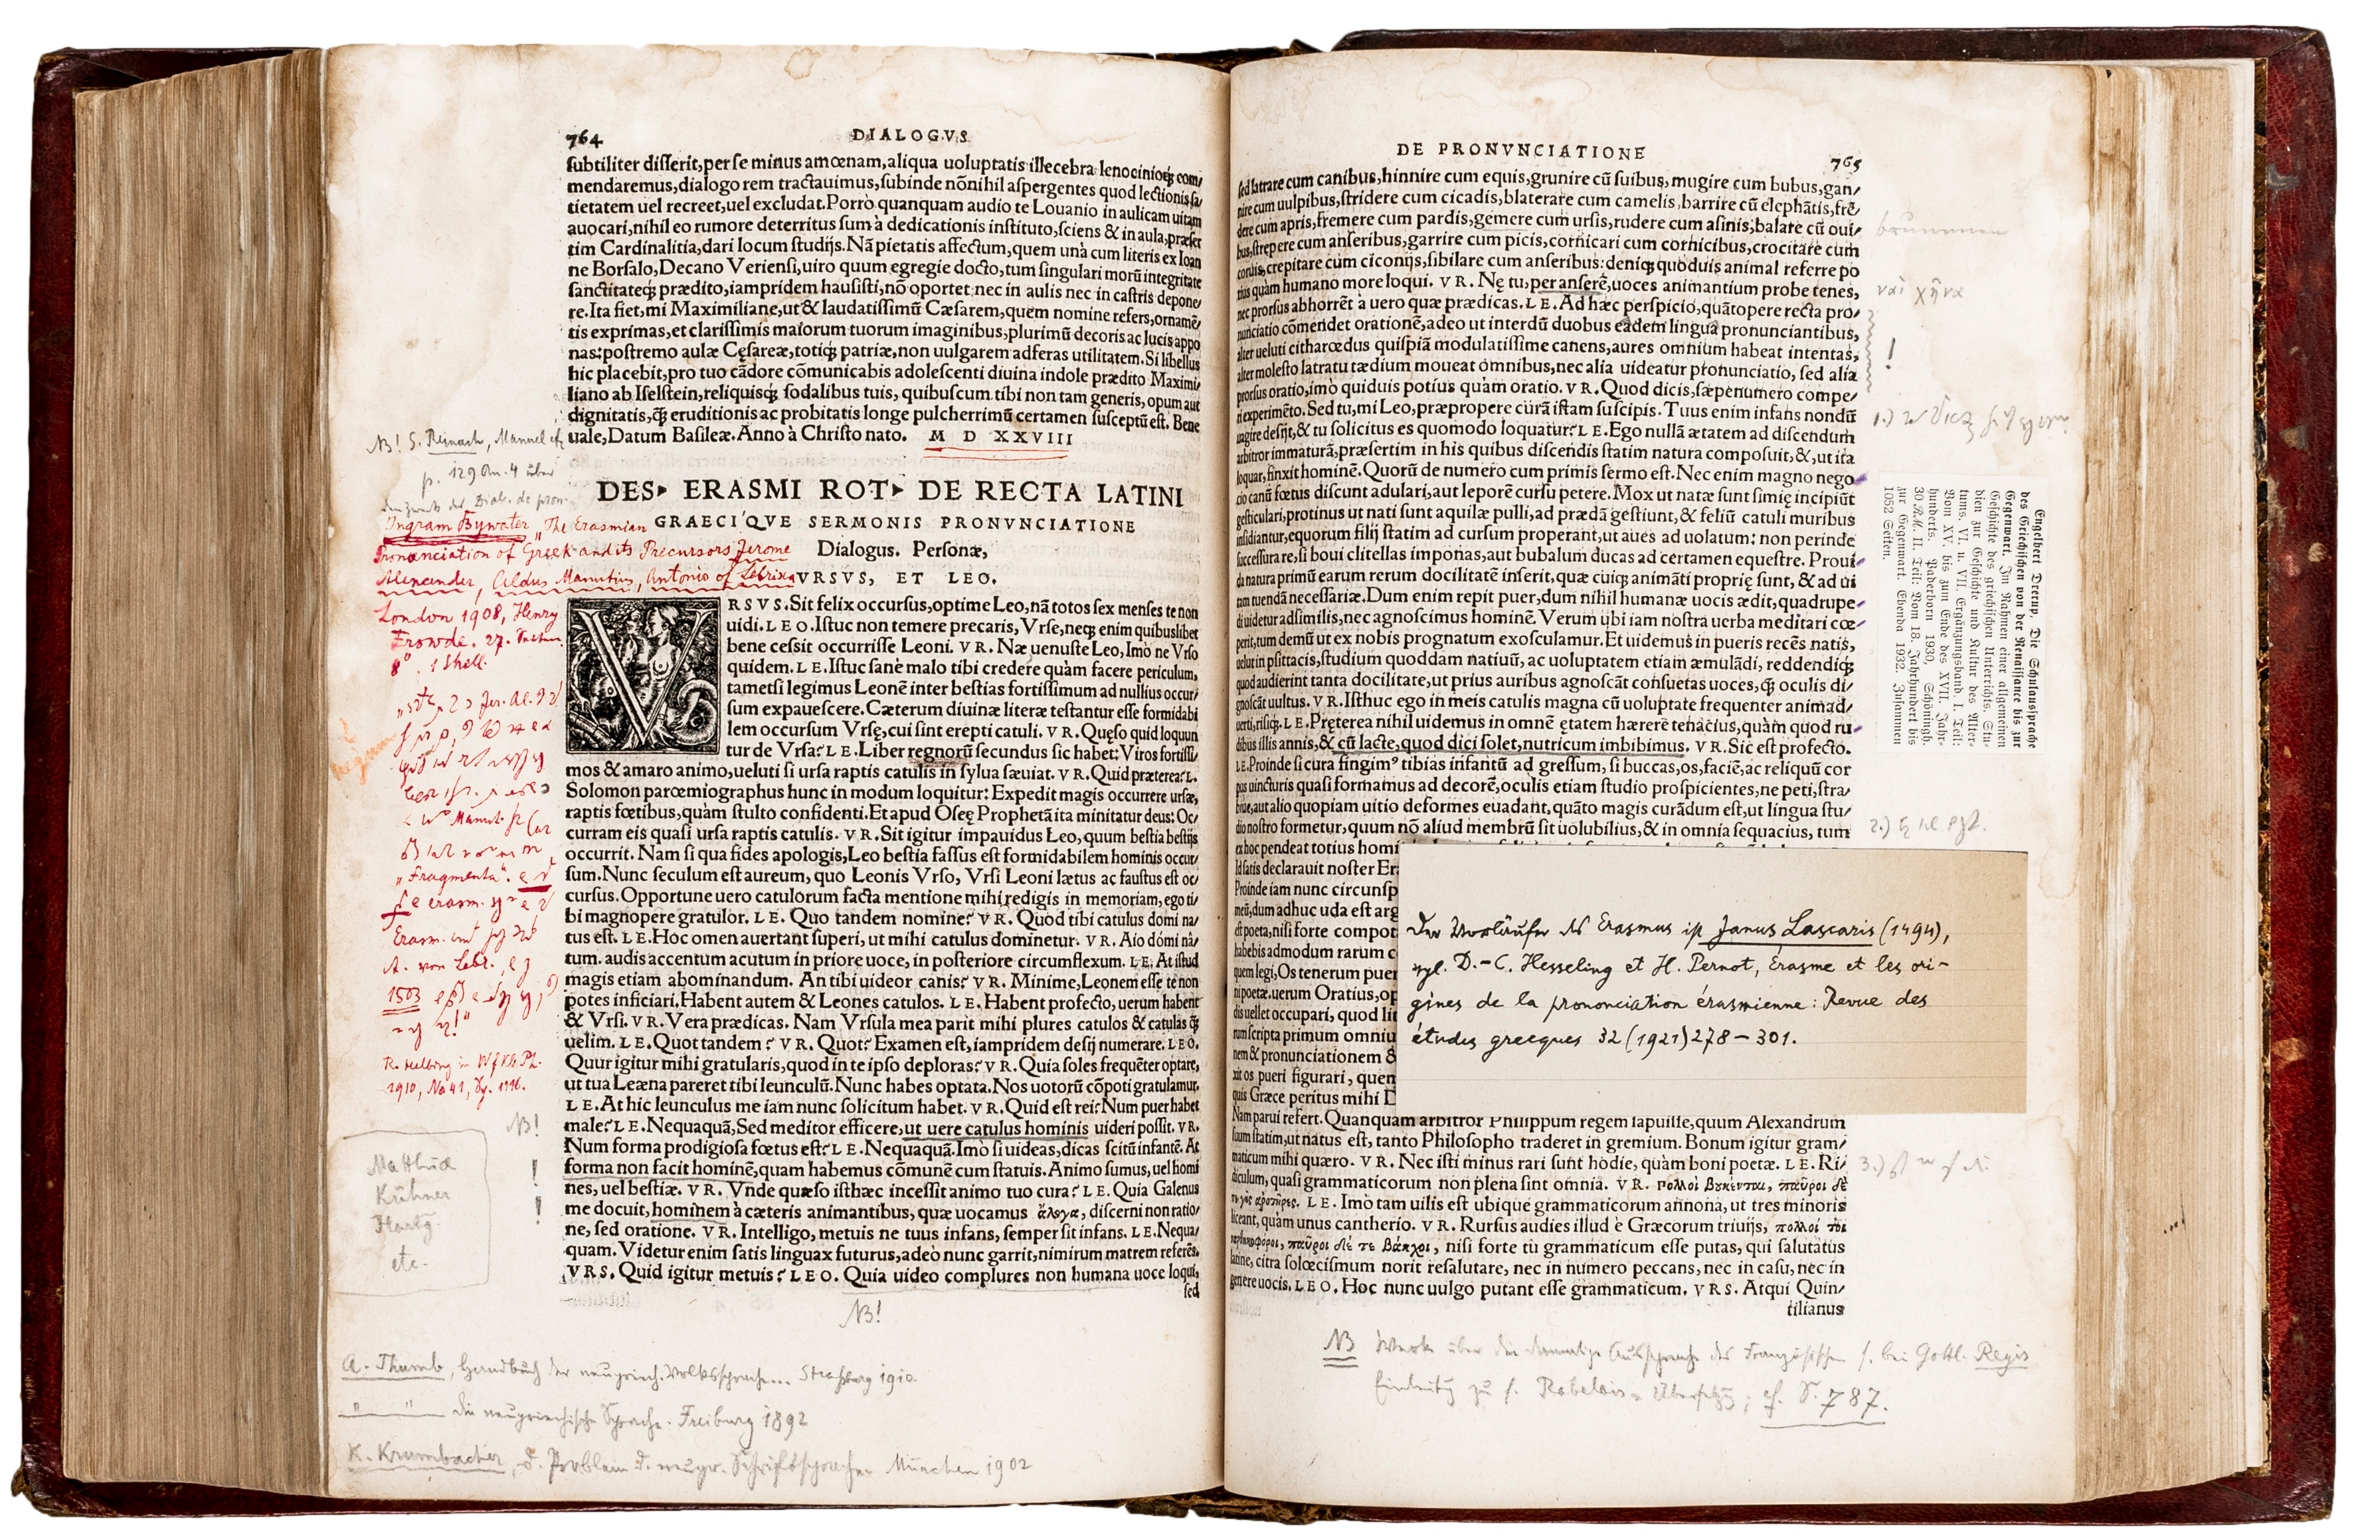 764
DIALOGVS
subtiliter disserit, per se minus amœnam, aliqua uoluptatis illecebra lenocinioq́; com/
mendaremus, dialogo rem tractauimus, subinde nõnihil aspergentes quod lectionis sa/
tietatem uel recreet, uel excludat. Porrò quanquam audio te Louanio in aulicam uitam
auocari, nihil eo rumore deterritus sum à dedicationis instituto, sciens & in aula, præser
tim Cardinalitia, dari locum studijs. Nã pietatis affectum, quem unà cum literis ex Ioan
ne Borsalo, Decano Veriensi, uiro quum egregie docto, tum singulari morũ integritate
sanctitateq́; prædito, iampridem hausisti, nõ oportet nec in aulis nec in castris depone/
re. Ita fiet, mi Maximiliane, ut & laudatissimũ Cæsarem, quem nomine refers, ornamẽ/
tis exprimas, et clarissimis maiorum tuorum imaginibus, plurimũ decoris ac lucis appo
nas: postremo aulæ Cęsareæ, totiq́; patriæ, non uulgarem adferas utilitatem. Si libellus
hic placebit, pro tuo cãdore cõmunicabis adolescenti diuina indole prædito Maximi/
liano ab Iselstein, reliquisq́; sodalibus tuis, quibuscum tibi non tam generis, opum aut
dignitatis, q̃; eruditionis ac probitatis longe pulcherrimũ certamen susceptũ est. Bene
uale, Datum Basileæ. Anno à Christo nato. M D XXVIII
NB! S. Reinach, Manuel cf.
p. 129 An. 4 über
DES. ERASMI ROT. DE RECTA LATINI
GRAECI'QVE SERMONIS PRONVNCIATIONE
Dialogus. Personæ,
VRSVS, ET LEO.
Ingram Bywater „The Erasmian
Pronunciation of Greek and its Precursors Jerome
Alexander, Aldus Manutius, Antonio of Lebrixa
London 1908, Henry
Frowde. 27.
8° 1 Shell.
RSVS. Sit felix occursus, optime Leo, nã totos sex menses te non
uidi. LEO. Istuc non temere precaris, Vrse, neq; enim quibuslibet
bene cessit occurrisse Leoni. VR. Næ uenuste Leo, Imò ne Vrso
quidem. LE. Istuc sanè malo tibi credere quàm facere periculum,
tametsi legimus Leonẽ inter bestias fortissimum ad nullius occur/
sum expauescere. Cæterum diuinæ literæ testantur esse formidabi
lem occursum Vrsę, cui sint erepti catuli. VR. Quęso quid loquun
tur de Vrsa? LE. Liber regnorũ secundus sic habet: Viros fortissi/
mos & amaro animo, ueluti si ursa raptis catulis in sylua sæuiat. VR. Quid præterea? L.
Solomon parœmiographus hunc in modum loquitur: Expedit magis occurrere ursæ,
raptis fœtibus, quàm stulto confidenti. Et apud Oseę Prophetã ita minitatur deus: Oc/
curram eis quasi ursa raptis catulis. VR. Sit igitur impauidus Leo, quum bestia bestijs
occurrit. Nam si qua fides apologis, Leo bestia fassus est formidabilem hominis occur/
sum. Nunc seculum est aureum, quo Leonis Vrso, Vrsi Leoni lætus ac faustus est oc/
cursus. Opportune uero catulorum facta mentione mihi redigis in memoriam, ego ti/
bi magnopere gratulor. LE. Quo tandem nomine? VR. Quòd tibi catulus domi na/
tus est. LE. Hoc omen auertant superi, ut mihi catulus dominetur. VR. Aio dómi nâ/
tum. audis accentum acutum in priore uoce, in posteriore circumflexum. LE. At istud
magis etiam abominandum. An tibi uideor canis? VR. Minime, Leonem esse te non
potes inficiari. Habent autem & Leones catulos. LE. Habent profecto, uerum habent
& Vrsi. VR. Vera prædicas. Nam Vrsula mea parit mihi plures catulos & catulas q̃;
uelim. LE. Quot tandem? VR. Quot? Examen est, iampridem desij numerare. LEO.
Quur igitur mihi gratularis, quod in te ipso deploras? VR. Quia soles frequẽter optare,
ut tua Leæna pareret tibi leunculũ. Nunc habes optata. Nos uotorũ cõpoti gratulamur.
LE. At hic leunculus me iam nunc solicitum habet. VR. Quid est rei? Num puer habet
male? LE. Nequaquã, Sed meditor efficere, ut uere catulus hominis uideri possit. VR.
Num forma prodigiosa fœtus est? LE. Nequaquã. Imò si uideas, dicas scitũ infantẽ. At
forma non facit hominẽ, quam habemus cõmunẽ cum statuis. Animo sumus, uel homi
nes, uel bestiæ. VR. Vnde quæso isthæc incessit animo tuo cura? LE. Quia Galenus
me docuit, hominem à cæteris animantibus, quæ uocamus ἄλογα, discerni non ratio/
ne, sed oratione. VR. Intelligo, metuis ne tuus infans, semper sit infans. LE. Nequa/
quam. Videtur enim satis linguax futurus, adeò nunc garrit, nimirum matrem referẽs.
VRS. Quid igitur metuis? LEO. Quia uideo complures non humana uoce loqui,
sed
Jer. Al.
Manut.
„Fragmenta".
Erasm.
A. von Lebr.
1503
1910, No 41,
NB!
Matthiä
Kühner
etc.
!
!
NB!
A. Thumb, Handbuch der neugriech. Volkssprache... Straßburg 1910.
" " Die neugriechische Sprache. Freiburg 1892
K. Krumbacher, d. Problem d. neugr. Schriftsprache München 1902
DE PRONVNCIATIONE
765
sed latrare cum canibus, hinnire cum equis, grunire cũ suibus, mugire cum bubus, gan/
nire cum uulpibus, stridere cum cicadis, blaterare cum camelis, barrire cũ elephãtis, frẽ/
dere cum apris, fremere cum pardis, gemere cum ursis, rudere cum asinis, balare cũ oui/
bus, strepere cum anseribus, garrire cum picis, cornicari cum cornicibus, crocitare cum
coruis, crepitare cum ciconijs, sibilare cum anseribus: deniq; quoduis animal referre po
tius quàm humano more loqui. VR. Nę tu, per anserẽ, uoces animantium probe tenes,
nec prorsus abhorrẽt à uero quæ prædicas. LE. Ad hæc perspicio, quãtopere recta pro/
nunciatio cõmendet orationẽ, adeo ut interdũ duobus eadem lingua pronunciantibus,
alter ueluti citharœdus quispiã modulatissime canens, aures omnium habeat intentas,
alter molesto latratu tædium moueat omnibus, nec alia uideatur pronunciatio, sed alia
prorsus oratio, imò quiduis potius quàm oratio. VR. Quod dicis, sæpenumero compe/
ri experimẽto. Sed tu, mi Leo, præpropere curã istam suscipis. Tuus enim infans nondũ
uagire desijt, & tu solicitus es quomodo loquatur? LE. Ego nullã ætatem ad discendum
arbitror immaturã, præsertim in his quibus discendis statim natura composuit, &, ut ita
loquar, finxit hominẽ. Quorũ de numero cum primis sermo est. Nec enim magno nego/
cio canũ fœtus discunt adulari, aut leporẽ cursu petere. Mox ut natæ sunt simię incipiũt
gesticulari, protinus ut nati sunt aquilæ pulli, ad prædã gestiunt, & feliũ catuli muribus
insidiantur, equorum filij statim ad cursum properant, ut aues ad uolatum: non perinde
successura re, si boui clitellas imponas, aut bubalum ducas ad certamen equestre. Proui/
da natura primũ earum rerum docilitatẽ inserit, quæ cuiq; animãti proprię sunt, & ad ui
tam tuendã necessariæ. Dum enim repit puer, dum nihil humanæ uocis ædit, quadrupe/
di uidetur adsimilis, nec agnoscimus hominẽ. Verum ubi iam nostra uerba meditari cœ/
perit, tum demũ ut ex nobis prognatum exosculamur. Et uidemus in pueris recẽs natis,
uelut in psittacis, studium quoddam natiuũ, ac uoluptatem etiam æmulãdi, reddendiq́;
quod audierint tanta docilitate, ut prius auribus agnoscãt consuetas uoces, q̃; oculis di/
gnoscãt uultus. VR. Isthuc ego in meis catulis magna cũ uoluptate frequenter animad/
uerti, risiq́;. LE. Pręterea nihil uidemus in omnẽ ętatem hærere tenacius, quàm quod ru/
dibus illis annis, & cũ lacte, quod dici solet, nutricum imbibimus. VR. Sic est profecto.
LE. Proinde si cura fingim⁹ tibias infantũ ad gressum, si buccas, os, faciẽ, ac reliquũ cor
pus uincturis quasi formamus ad decorẽ, oculis etiam studio prospicientes, ne peti, stra/
biue, aut alio quopiam uitio deformes euadant, quãto magis curãdum est, ut lingua stu/
dio nostro formetur, quum nõ aliud membrũ sit uolubilius, & in omnia sequacius, tum
ex hoc pendeat totius homi
Id satis declarauit noster Er
Proinde iam nunc circunsp
meũ, dum adhuc uda est arg
est poeta, nisi forte compot
habebis admodum rarum c
quem legi, Os tenerum puer
ni poetæ. uerum Oratius, op
dis uellet occupari, quod lit
rum scripta primum omniu
nem & pronunciationem &
xit os pueri figurari, quem
quis Græce peritus mihi D
Nam parui refert. Quanquam arbitror Philippum regem sapuisse, quum Alexandrum
suum statim, ut natus est, tanto Philosopho traderet in gremium. Bonum igitur gram/
maticum mihi quæro. VR. Nec isti minus rari sunt hodie, quàm boni poetæ. LE. Ri/
diculum, quasi grammaticorum non plena sint omnia. VR. πολλοὶ βυκένται, παῦροι δέ
τε γῆς ἀροτῆρες. LE. Imò tam uilis est ubique grammaticorum annona, ut tres minoris
liceant, quàm unus cantherio. VR. Rursus audies illud è Græcorum triuijs, πολλοί τοι
ναρθηκοφόροι, παῦροι δέ τε βάκχοι, nisi forte tu grammaticum esse putas, qui salutatus
latine, citra solœcismum norit resalutare, nec in numero peccans, nec in casu, nec in
genere uocis. LEO. Hoc nunc uulgo putant esse grammaticum. VRS. Atqui Quin/
tilianus
brummen
ναὶ χῆνα
!
1.)
Engelbert Drerup, Die Schulaussprache
des Griechischen von der Renaissance bis zur
Gegenwart. Im Rahmen einer allgemeinen
Geschichte des griechischen Unterrichts. Stu-
dien zur Geschichte und Kultur des Alter-
tums. VI. u. VII. Ergänzungsband. I. Teil:
Vom XV. bis zum Ende des XVII. Jahr-
hunderts. Paderborn 1930, Schöningh.
30 RM. II. Teil: Vom 18. Jahrhundert bis
zur Gegenwart. Ebenda 1932. Zusammen
1052 Seiten.
2.)
Der Vorläufer des Erasmus ist Janus Lascaris (1494),
vgl. D.-C. Hesseling et H. Pernot, Érasme et les ori-
gines de la prononciation érasmienne: Revue des
études grecques 32 (1921) 278-301.
3.)
NB Werke über die damalige Aussprache des Französischen s. bei Gottl. Regis
Einleitg zu s. Rabelais-Übersetzg; cf. S. 787.